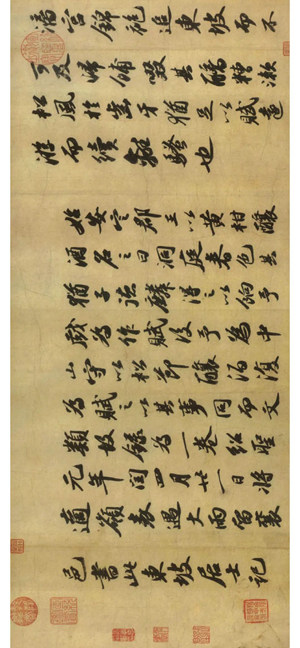 漓宮錦袍追東坡而不
可及歸餔歠其醨糟漱
松風於齒牙猶足以賦遠
遊而續離騷也
始安定郡王以黃柑釀
酒名之曰洞庭春色其
猶子德麟得之以餉予
戲為作賦後予為中
山守以松節釀酒復
為賦之以其事同而文
類故錄為一卷紹聖
元年閏四月廿一日將
適嶺表遇大雨留襄
邑書此東坡居士記